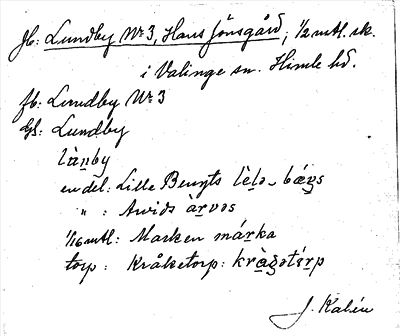 Jb: Lundby Nr 3, Hans Jönsgård, 1/2 mtl. sk.
i Valinge sn. Himle hd.
fb: Lundby Nr 3
Gs: Lundby
làn̠by
en del: Lille Bengts lèlə- bǽŋs
" : Arvids àr̠vəs
1/16 mtl: Marken már̠ka
torp: Kråketorp: kràgətɩ́r̠p
J. Kalén